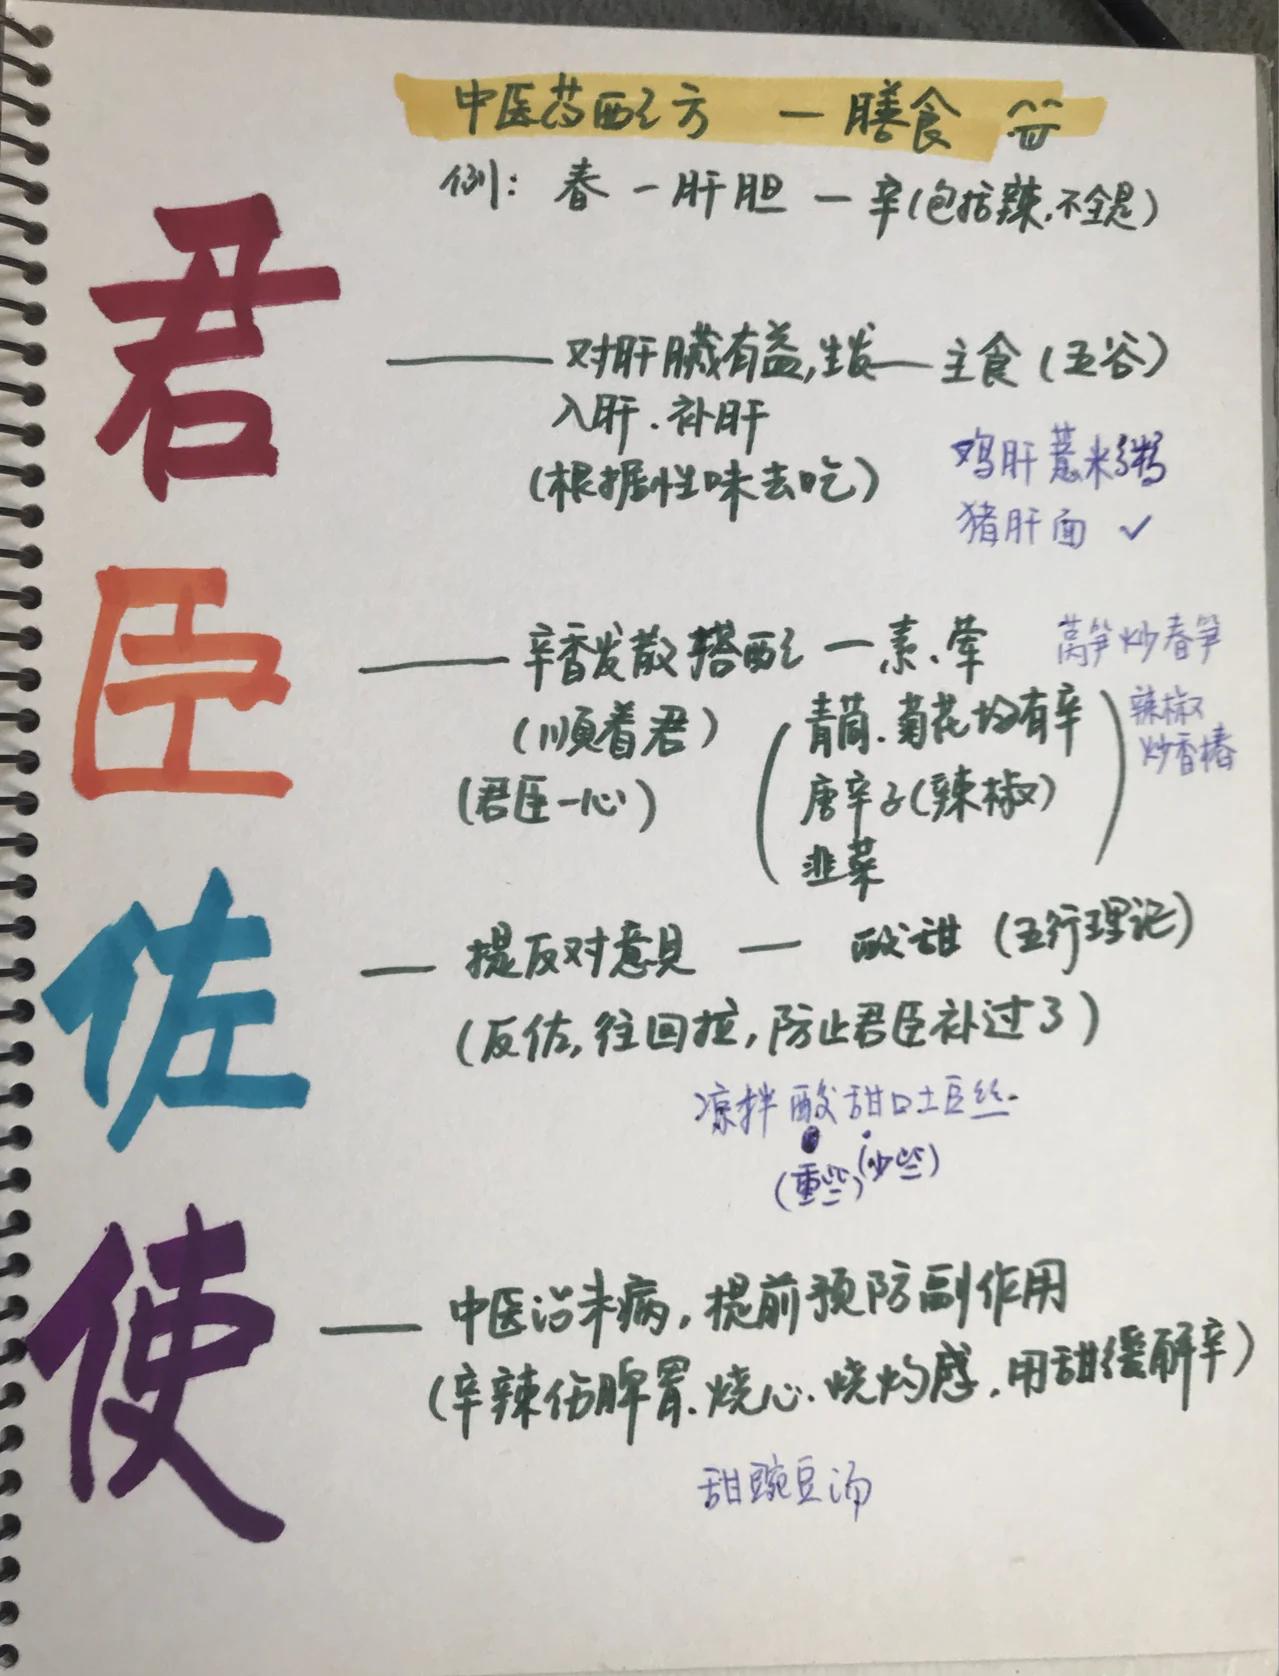 中医药配方 — 膳食
例：春 — 肝胆 — 辛（包括辣，不全是）
君
—— 对肝脏有益，生发 — 主食（五谷）
入肝．补肝
（根据性味去吃）
鸡肝薏米粥
猪肝面 ✓
臣
—— 辛香发散搭配 — 素、荤
莴笋炒春笋
（顺着君）
（君臣一心）
（青蒿．菊花均有辛
唐辛子（辣椒）
韭菜）
辣椒
炒香椿
佐
— 提反对意见 — 酸甜（五行理论）
（反佐，往回拉，防止君臣补过了）
凉拌酸甜口土豆丝
（重些）（少些）
使
— 中医治未病，提前预防副作用
（辛辣伤脾胃．烧心．烧灼感，用甜缓解辛）
甜豌豆汤